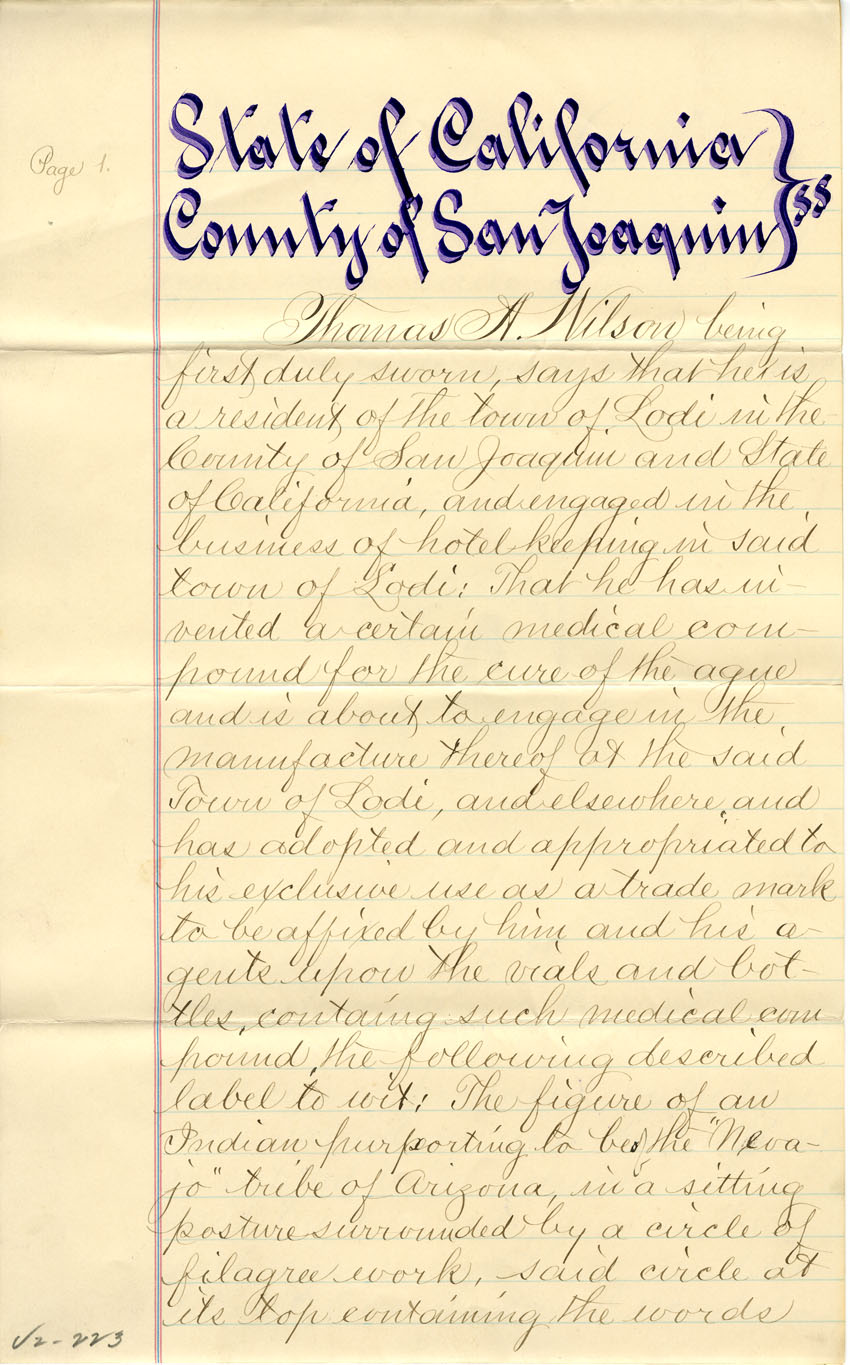 Page 1.
State of California } ss
County of San Joaquin }
Thomas A. Wilson being
first duly sworn, says that he is
a resident of the town of Lodi in the
County of San Joaquin and State
of California, and engaged in the
business of hotel keeping in said
town of Lodi: That he has in-
vented a certain medical com-
pound for the cure of the ague
and is about to engage in the
manufacture thereof at the said
Town of Lodi, and elsewhere, and
has adopted and appropriated to
his exclusive use as a trade mark
to be affixed by him and his a-
gents upon the vials and bot-
tles, containg such medical com
pound, the following described
label to wit: The figure of an
Indian purporting to be of the "Neva-
jo" tribe of Arizona, in a sitting
posture surrounded by a circle of
filagree work, said circle at
its top containing the words
V2-223